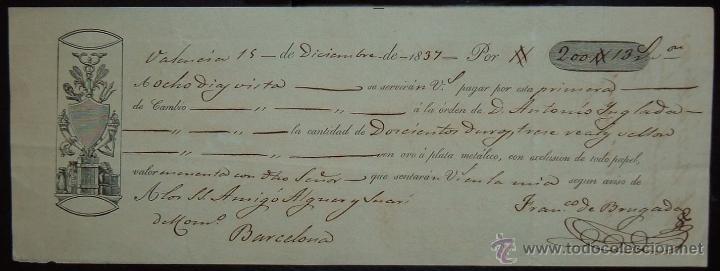 Valencia 15 — de Diciembre — de — 1837 — Por # 200 # 13 Rs. von
A ocho dias vista — se servirán Vs. pagar por esta primera —
de Cambio — " — " — á la órden de D. Antonio Inglada —
— " — " — la cantidad de Doscientos duros y trece reales vellon
— " — " — en oro ó plata metálico, con esclusion de todo papel,
valor en cuenta con dho Señor — que sentarán Vs. en la mia segun aviso de
A los SS. Amigó Alguer y
del Com.º
Franco. de Brugada
Barcelona
todocoleccion.net